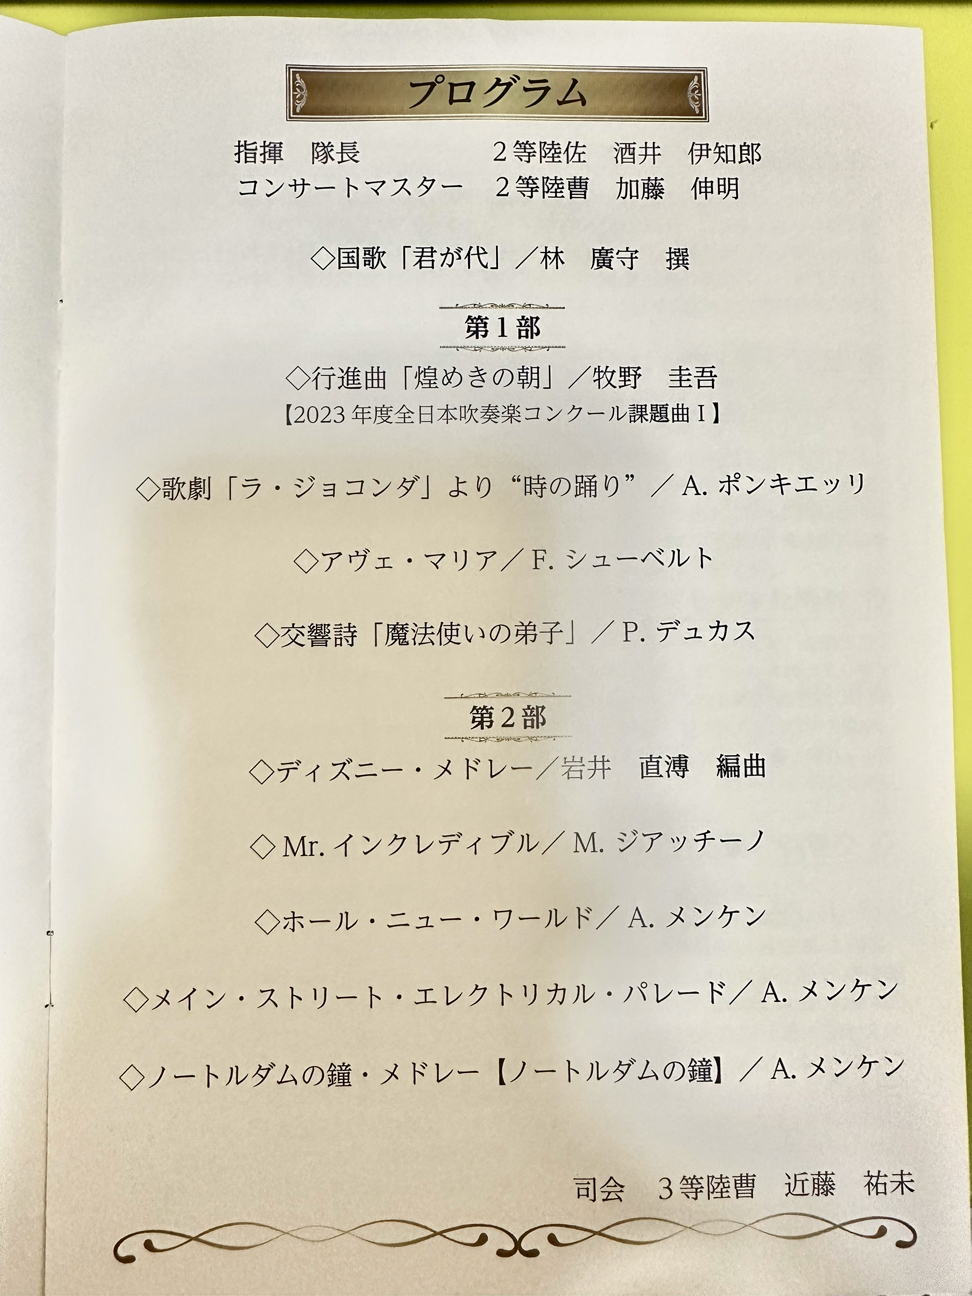 プログラム
指揮　隊長　　　　　２等陸佐　酒井　伊知郎
コンサートマスター　２等陸曹　加藤　伸明
◇国歌「君が代」／林　廣守　撰
第１部
◇行進曲「煌めきの朝」／牧野　圭吾
【2023 年度全日本吹奏楽コンクール課題曲Ⅰ】
◇歌劇「ラ・ジョコンダ」より“時の踊り”／ A. ポンキエッリ
◇アヴェ・マリア／ F. シューベルト
◇交響詩「魔法使いの弟子」／ P. デュカス
第２部
◇ディズニー・メドレー／岩井　直溥　編曲
◇ Mr. インクレディブル／ M. ジアッチーノ
◇ホール・ニュー・ワールド／ A. メンケン
◇メイン・ストリート・エレクトリカル・パレード／ A. メンケン
◇ノートルダムの鐘・メドレー【ノートルダムの鐘】／ A. メンケン
司会　３等陸曹　近藤　祐未